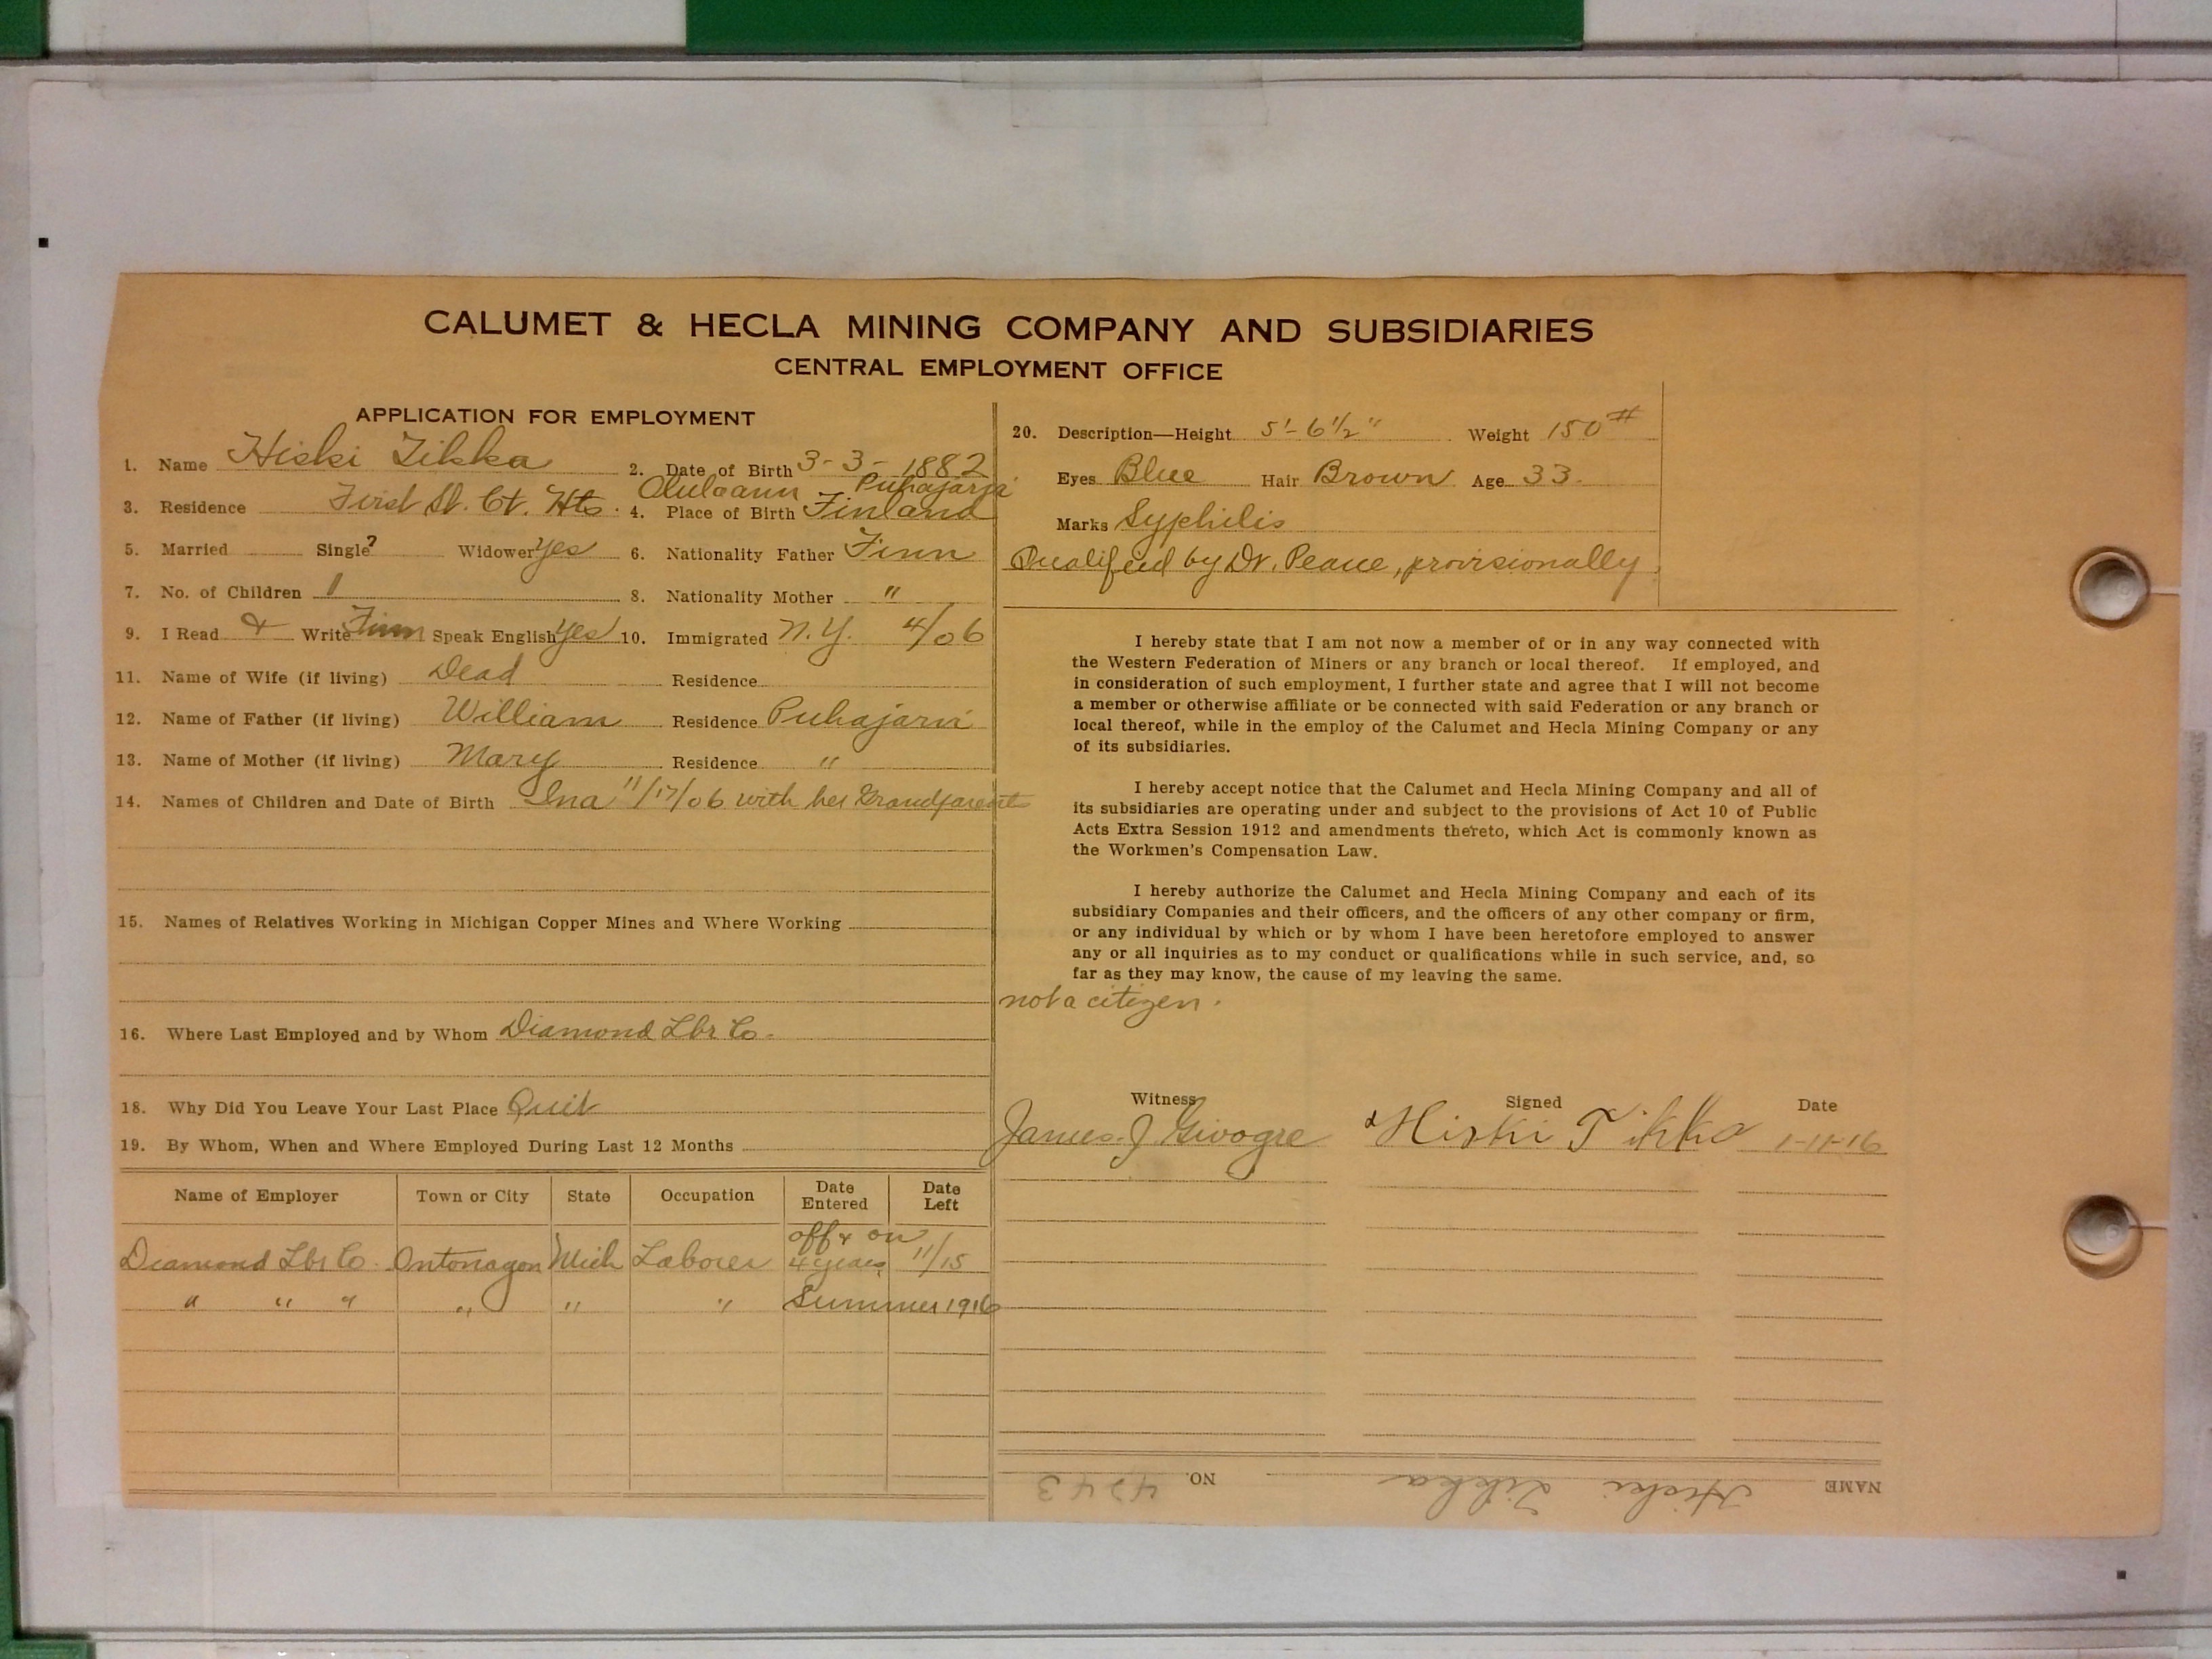 CALUMET & HECLA MINING COMPANY AND SUBSIDIARIES
CENTRAL EMPLOYMENT OFFICE
APPLICATION FOR EMPLOYMENT
1. Name Hiski Tikka 2. Date of Birth 3-3-1882
Puhajarvi
3. Residence First St. Ct. Hts. 4. Place of Birth Finland
5. Married Single ? Widower Yes 6. Nationality Father Finn
7. No. of Children 1 8. Nationality Mother "
9. I Read & Write Finn Speak English Yes 10. Immigrated N.Y. 4/06
11. Name of Wife (if living) Dead Residence
12. Name of Father (if living) William Residence Puhajarvi
13. Name of Mother (if living) Mary Residence "
14. Names of Children and Date of Birth Ina 11/17/06 with her Grandparents
15. Names of Relatives Working in Michigan Copper Mines and Where Working
16. Where Last Employed and by Whom Diamond Lbr Co.
18. Why Did You Leave Your Last Place Quit
19. By Whom, When and Where Employed During Last 12 Months
Name of Employer Town or City State Occupation Date Entered Date Left
Diamond Lbr Co. Ontonagon Mich Laborer off & on 4 years 11/15
" " " " " " Summer 1916
20. Description—Height 5'-6 1/2" Weight 150#
Eyes Blue Hair Brown Age 33
Marks Syphilis
Qualified by Dr. Pease, provisionally
I hereby state that I am not now a member of or in any way connected with
the Western Federation of Miners or any branch or local thereof. If employed, and
in consideration of such employment, I further state and agree that I will not become
a member or otherwise affiliate or be connected with said Federation or any branch or
local thereof, while in the employ of the Calumet and Hecla Mining Company or any
of its subsidiaries.
I hereby accept notice that the Calumet and Hecla Mining Company and all of
its subsidiaries are operating under and subject to the provisions of Act 10 of Public
Acts Extra Session 1912 and amendments thereto, which Act is commonly known as
the Workmen's Compensation Law.
I hereby authorize the Calumet and Hecla Mining Company and each of its
subsidiary Companies and their officers, and the officers of any other company or firm,
or any individual by which or by whom I have been heretofore employed to answer
any or all inquiries as to my conduct or qualifications while in such service, and, so
far as they may know, the cause of my leaving the same.
not a citizen.
Witness Signed Date
James J. Hiski Tikka 1-11-16
NAME Hiski Tikka NO. 4243